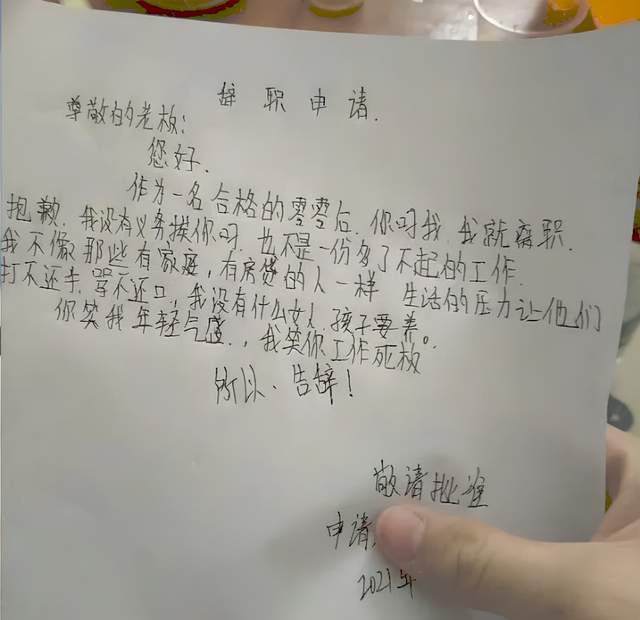 辞职申请.
尊敬的老板:
您好.
作为一名合格的零零后.你吼我.我就离职.
抱歉.我没有义务挨你吼.也不是一份多了不起的工作.
我不像那些有家庭,有房贷的人一样 生活的压力让他们
打不还手.骂不还口,我没有什么女人.孩子要养.
你笑我年轻气盛.,我笑你工作死板。
所以、告辞!
敬请批准
申请
2021年